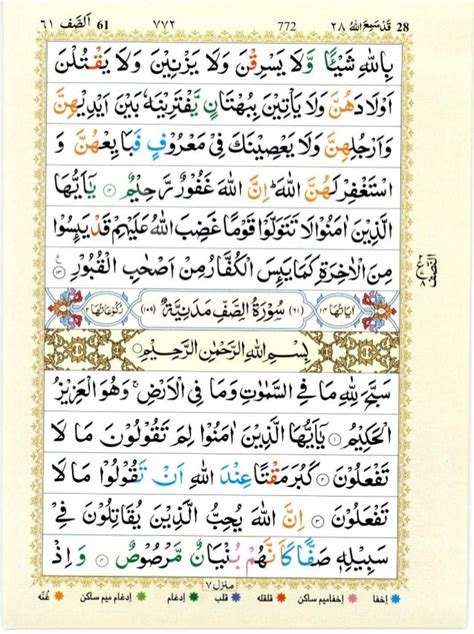 قَدْ سَمِعَ اللهُ ٢٨ 28 772 ٧٧٢ 61 اَلصَّف ٦١
بِاللهِ شَيْئًا وَّلَا يَسْرِقْنَ وَلَا يَزْنِيْنَ وَلَا يَقْتُلْنَ
اَوْلَادَهُنَّ وَلَا يَأْتِيْنَ بِبُهْتَانٍ يَّفْتَرِيْنَهٗ بَيْنَ اَيْدِيْهِنَّ
وَاَرْجُلِهِنَّ وَلَا يَعْصِيْنَكَ فِيْ مَعْرُوْفٍ فَبَايِعْهُنَّ وَ
اسْتَغْفِرْ لَهُنَّ اللهَ ؕ اِنَّ اللهَ غَفُوْرٌ رَّحِيْمٌ ۝۱۲ يٰۤاَيُّهَا
الَّذِيْنَ اٰمَنُوْا لَا تَتَوَلَّوْا قَوْمًا غَضِبَ اللهُ عَلَيْهِمْ قَدْ يَئِسُوْا
مِنَ الْاٰخِرَةِ كَمَا يَئِسَ الْكُفَّارُ مِنْ اَصْحٰبِ الْقُبُوْرِ ۝۱۳
اٰيَاتُهَا ١٤ (٦١) سُوْرَةُ الصَّفِّ مَدَنِيَّةٌ (١٠٩) رُكُوْعَاتُهَا ٢
بِسْمِ اللهِ الرَّحْمٰنِ الرَّحِيْمِ
سَبَّحَ لِلّٰهِ مَا فِي السَّمٰوٰتِ وَمَا فِي الْاَرْضِ ۚ وَهُوَ الْعَزِيْزُ
الْحَكِيْمُ ۝۱ يٰۤاَيُّهَا الَّذِيْنَ اٰمَنُوْا لِمَ تَقُوْلُوْنَ مَا لَا
تَفْعَلُوْنَ ۝۲ كَبُرَ مَقْتًا عِنْدَ اللهِ اَنْ تَقُوْلُوْا مَا لَا
تَفْعَلُوْنَ ۝۳ اِنَّ اللهَ يُحِبُّ الَّذِيْنَ يُقَاتِلُوْنَ فِيْ
سَبِيْلِهٖ صَفًّا كَاَنَّهُمْ بُنْيَانٌ مَّرْصُوْصٌ ۝۴ وَاِذْ
منزل ٧
اخفا اخفامیم ساکن قلقله قلب ادغام ادغام میم ساکن غُنّه